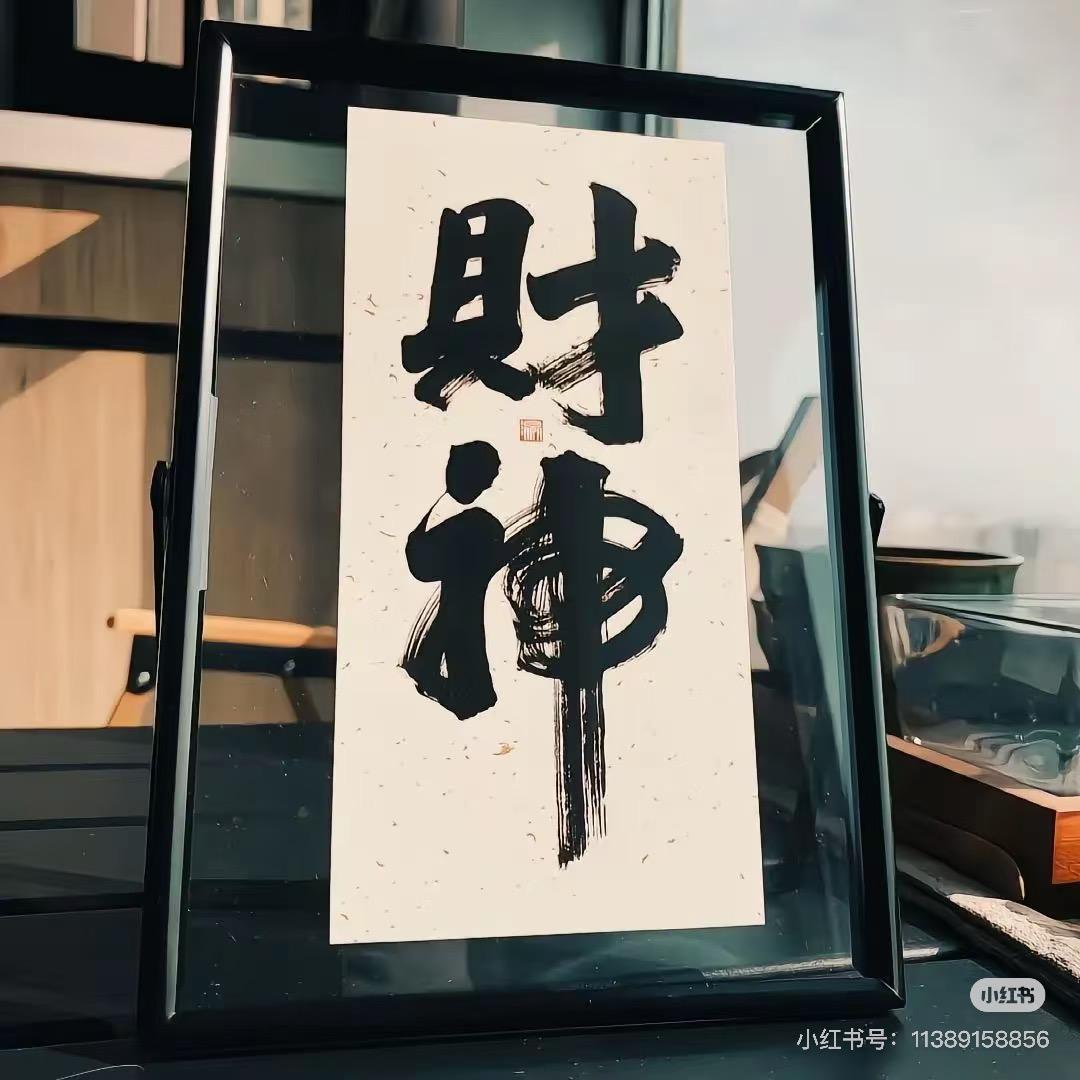 財神
小红书
小红书号：11389158856